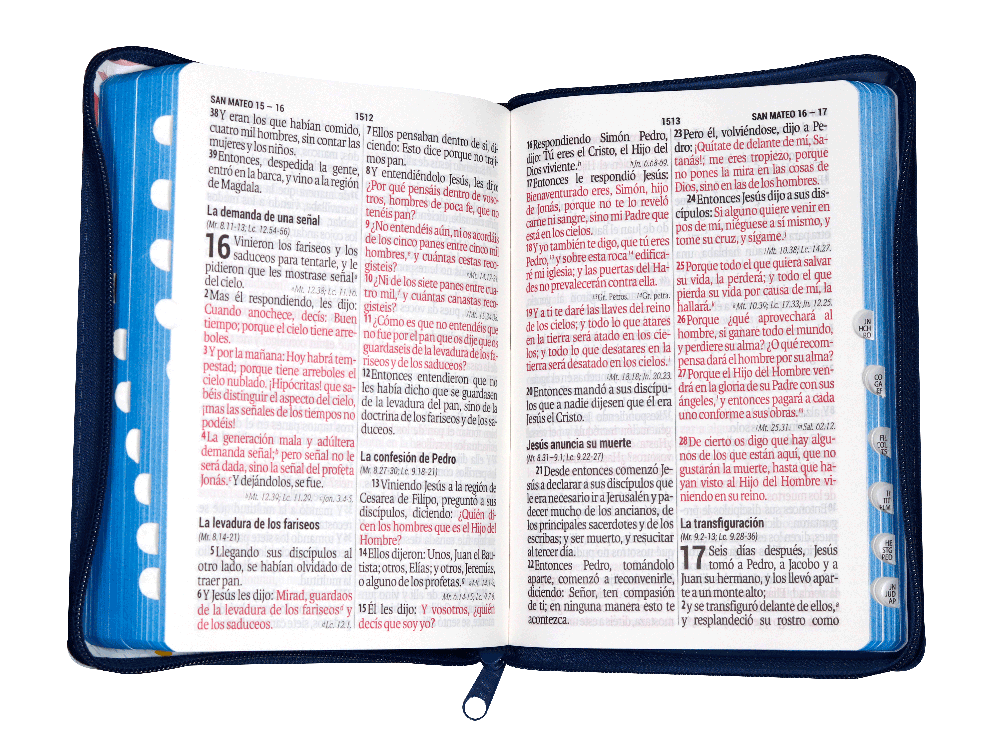 SAN MATEO 15 – 16
1512
38Y eran los que habían comido,
cuatro mil hombres, sin contar las
mujeres y los niños.
39Entonces, despedida la gente,
entró en la barca, y vino a la región
de Magdala.
La demanda de una señal
(Mr. 8.11-13; Lc. 12.54-56)
16 Vinieron los fariseos y los
saduceos para tentarle, y le
pidieron que les mostrase señal
del cielo.
2Mas él respondiendo, les dijo:
Cuando anochece, decís: Buen
tiempo; porque el cielo tiene arre-
boles.
3Y por la mañana: Hoy habrá tem-
pestad; porque tiene arreboles el
cielo nublado. ¡Hipócritas! que sa-
béis distinguir el aspecto del cielo,
¡mas las señales de los tiempos no
podéis!
4La generación mala y adúltera
demanda señal; pero señal no le
será dada, sino la señal del profeta
Jonás. Y dejándolos, se fue.
La levadura de los fariseos
(Mr. 8.14-21)
5Llegando sus discípulos al
otro lado, se habían olvidado de
traer pan.
6Y Jesús les dijo: Mirad, guardaos
de la levadura de los fariseos y
de los saduceos.
Lc. 12.1.
7Ellos pensaban dentro de sí, di-
ciendo: Esto dice porque no traji-
mos pan.
8Y entendiéndolo Jesús, les dijo:
¿Por qué pensáis dentro de voso-
tros, hombres de poca fe, que no
tenéis pan?
9¿No entendéis aún, ni os acordáis
de los cinco panes entre cinco mil
hombres, y cuántas cestas reco-
gisteis?
10¿Ni de los siete panes entre cua-
tro mil, y cuántas canastas reco-
gisteis?
11¿Cómo es que no entendéis que
no fue por el pan que os dije que os
guardaseis de la levadura de los fa-
riseos y de los saduceos?
12Entonces entendieron que no
les había dicho que se guardasen
de la levadura del pan, sino de la
doctrina de los fariseos y de los sa-
duceos.
La confesión de Pedro
(Mr. 8.27-30; Lc. 9.18-21)
13Viniendo Jesús a la región de
Cesarea de Filipo, preguntó a sus
discípulos, diciendo: ¿Quién di-
cen los hombres que es el Hijo del
Hombre?
14Ellos dijeron: Unos, Juan el Bau-
tista; otros, Elías; y otros, Jeremías,
o alguno de los profetas.
15Él les dijo: Y vosotros, ¿quién
decís que soy yo?
1513
SAN MATEO 16 – 17
16Respondiendo Simón Pedro,
dijo: Tú eres el Cristo, el Hijo del
Dios viviente.
Jn. 6.68-69.
17Entonces le respondió Jesús:
Bienaventurado eres, Simón, hijo
de Jonás, porque no te lo reveló
carne ni sangre, sino mi Padre que
está en los cielos.
18Y yo también te digo, que tú eres
Pedro, y sobre esta roca edifica-
ré mi iglesia; y las puertas del Ha-
des no prevalecerán contra ella.
Gr. Petros. Gr. petra.
19Y a ti te daré las llaves del reino
de los cielos; y todo lo que atares
en la tierra será atado en los cie-
los; y todo lo que desatares en la
tierra será desatado en los cielos.
Mt. 18.18; Jn. 20.23.
20Entonces mandó a sus discípu-
los que a nadie dijesen que él era
Jesús el Cristo.
Jesús anuncia su muerte
(Mr. 8.31–9.1; Lc. 9.22-27)
21Desde entonces comenzó Je-
sús a declarar a sus discípulos que
le era necesario ir a Jerusalén y pa-
decer mucho de los ancianos, de
los principales sacerdotes y de los
escribas; y ser muerto, y resucitar
al tercer día.
22Entonces Pedro, tomándolo
aparte, comenzó a reconvenirle,
diciendo: Señor, ten compasión
de ti; en ninguna manera esto te
acontezca.
23Pero él, volviéndose, dijo a Pe-
dro: ¡Quítate de delante de mí, Sa-
tanás!; me eres tropiezo, porque
no pones la mira en las cosas de
Dios, sino en las de los hombres.
24Entonces Jesús dijo a sus dis-
cípulos: Si alguno quiere venir en
pos de mí, niéguese a sí mismo, y
tome su cruz, y sígame.
Mt. 10.38; Lc. 14.27.
25Porque todo el que quiera salvar
su vida, la perderá; y todo el que
pierda su vida por causa de mí, la
hallará.
Mt. 10.39; Lc. 17.33; Jn. 12.25.
26Porque ¿qué aprovechará al
hombre, si ganare todo el mundo,
y perdiere su alma? ¿O qué recom-
pensa dará el hombre por su alma?
27Porque el Hijo del Hombre ven-
drá en la gloria de su Padre con sus
ángeles, y entonces pagará a cada
uno conforme a sus obras.
Mt. 25.31. Sal. 62.12.
28De cierto os digo que hay algu-
nos de los que están aquí, que no
gustarán la muerte, hasta que ha-
yan visto al Hijo del Hombre vi-
niendo en su reino.
La transfiguración
(Mr. 9.2-13; Lc. 9.28-36)
17 Seis días después, Jesús
tomó a Pedro, a Jacobo y a
Juan su hermano, y los llevó apar-
te a un monte alto;
2y se transfiguró delante de ellos,
y resplandeció su rostro como
JN
HCH
RO
CO
GA
EF
FIL
COL
TES
TI
TIT
FLM
HE
STG
PED
JN
JUD
AP